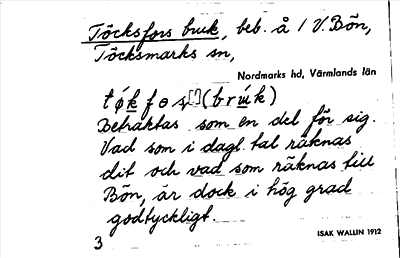 Töcksfors bruk, beb. å 1 V. Bön,
Töcksmarks sn,
Nordmarks hd, Värmlands län
(brúk)
Betraktas som en del för sig.
Vad som i dagl. tal räknas
dit och vad som räknas till
Bön, är dock i hög grad
godtyckligt.
3
ISAK WALLIN 1912